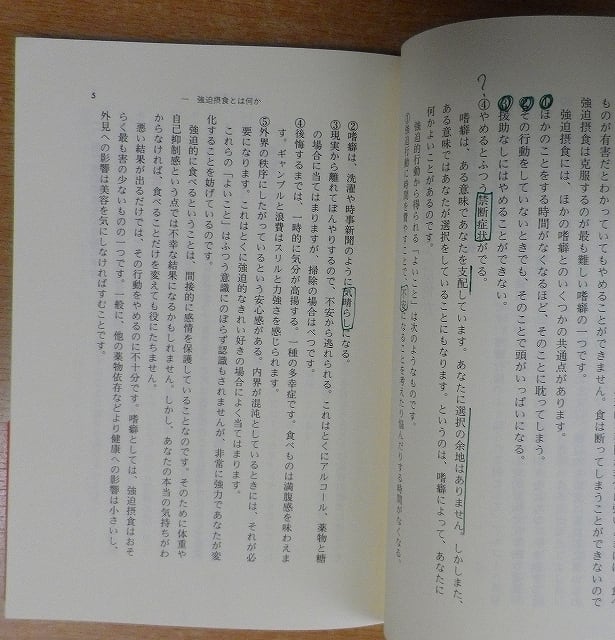 のが有害だとわかっていてもやめることができません。食は断ってしまうことができないので
強迫摂食は克服するのが最も難しい嗜癖の一つです。
強迫摂食には、ほかの嗜癖とのいくつかの共通点があります。
①ほかのことをする時間がなくなるほど、そのことに耽ってしまう。
②その行動をしていないときでも、そのことで頭がいっぱいになる。
③援助なしにはやめることができない。
?
④やめるとふつう禁断症状がでる。
嗜癖は、ある意味であなたを支配しています。あなたに選択の余地はありません。しかしまた、
ある意味ではあなたが選択をしていることにもなります。というのは、嗜癖によって、あなたに
何かよいことがあるのです。
強迫的行動から得られる「よいこと」は次のようなものです。
①強迫行動に時間を費やすことで、不安になることを考えたり悩んだりする時間がなくなる。
一 強迫摂食とは何か
5
②嗜癖は、洗濯や時事新聞のように気晴らしになる。
③現実から離れてぼんやりするので、不安から逃れられる。これはとくにアルコール、薬物と糖
の場合に当てはまりますが、掃除の場合はべつです。
④後悔するまでは、一時的に気分が高揚する。一種の多幸症です。食べものは満腹感を味わえま
す。ギャンブルと浪費はスリルと力強さを感じられます。
⑤外界の秩序にしたがっているという安心感がある。内界が混沌としているときには、それが必
要になります。これはとくに強迫的なきれい好きの場合によく当てはまります。
これらの「よいこと」はふつう意識にのぼらず認識もされませんが、非常に強力であなたが変
化することを妨げているのです。
強迫的に食べるということは、間接的に感情を保護していることなのです。そのために体重や
自己抑制感という点では不幸な結果になるかもしれません。しかし、あなたの本当の気持ちがわ
からなければ、食べることだけを変えても役にたちません。
悪い結果が出るだけでは、その行動をやめるのに不十分です。嗜癖としては、強迫摂食はおそ
らく最も害の少ないものの一つです。一般に、他の薬物依存などより健康への影響は小さいし、
外見への影響は美容を気にしなければすむことです。